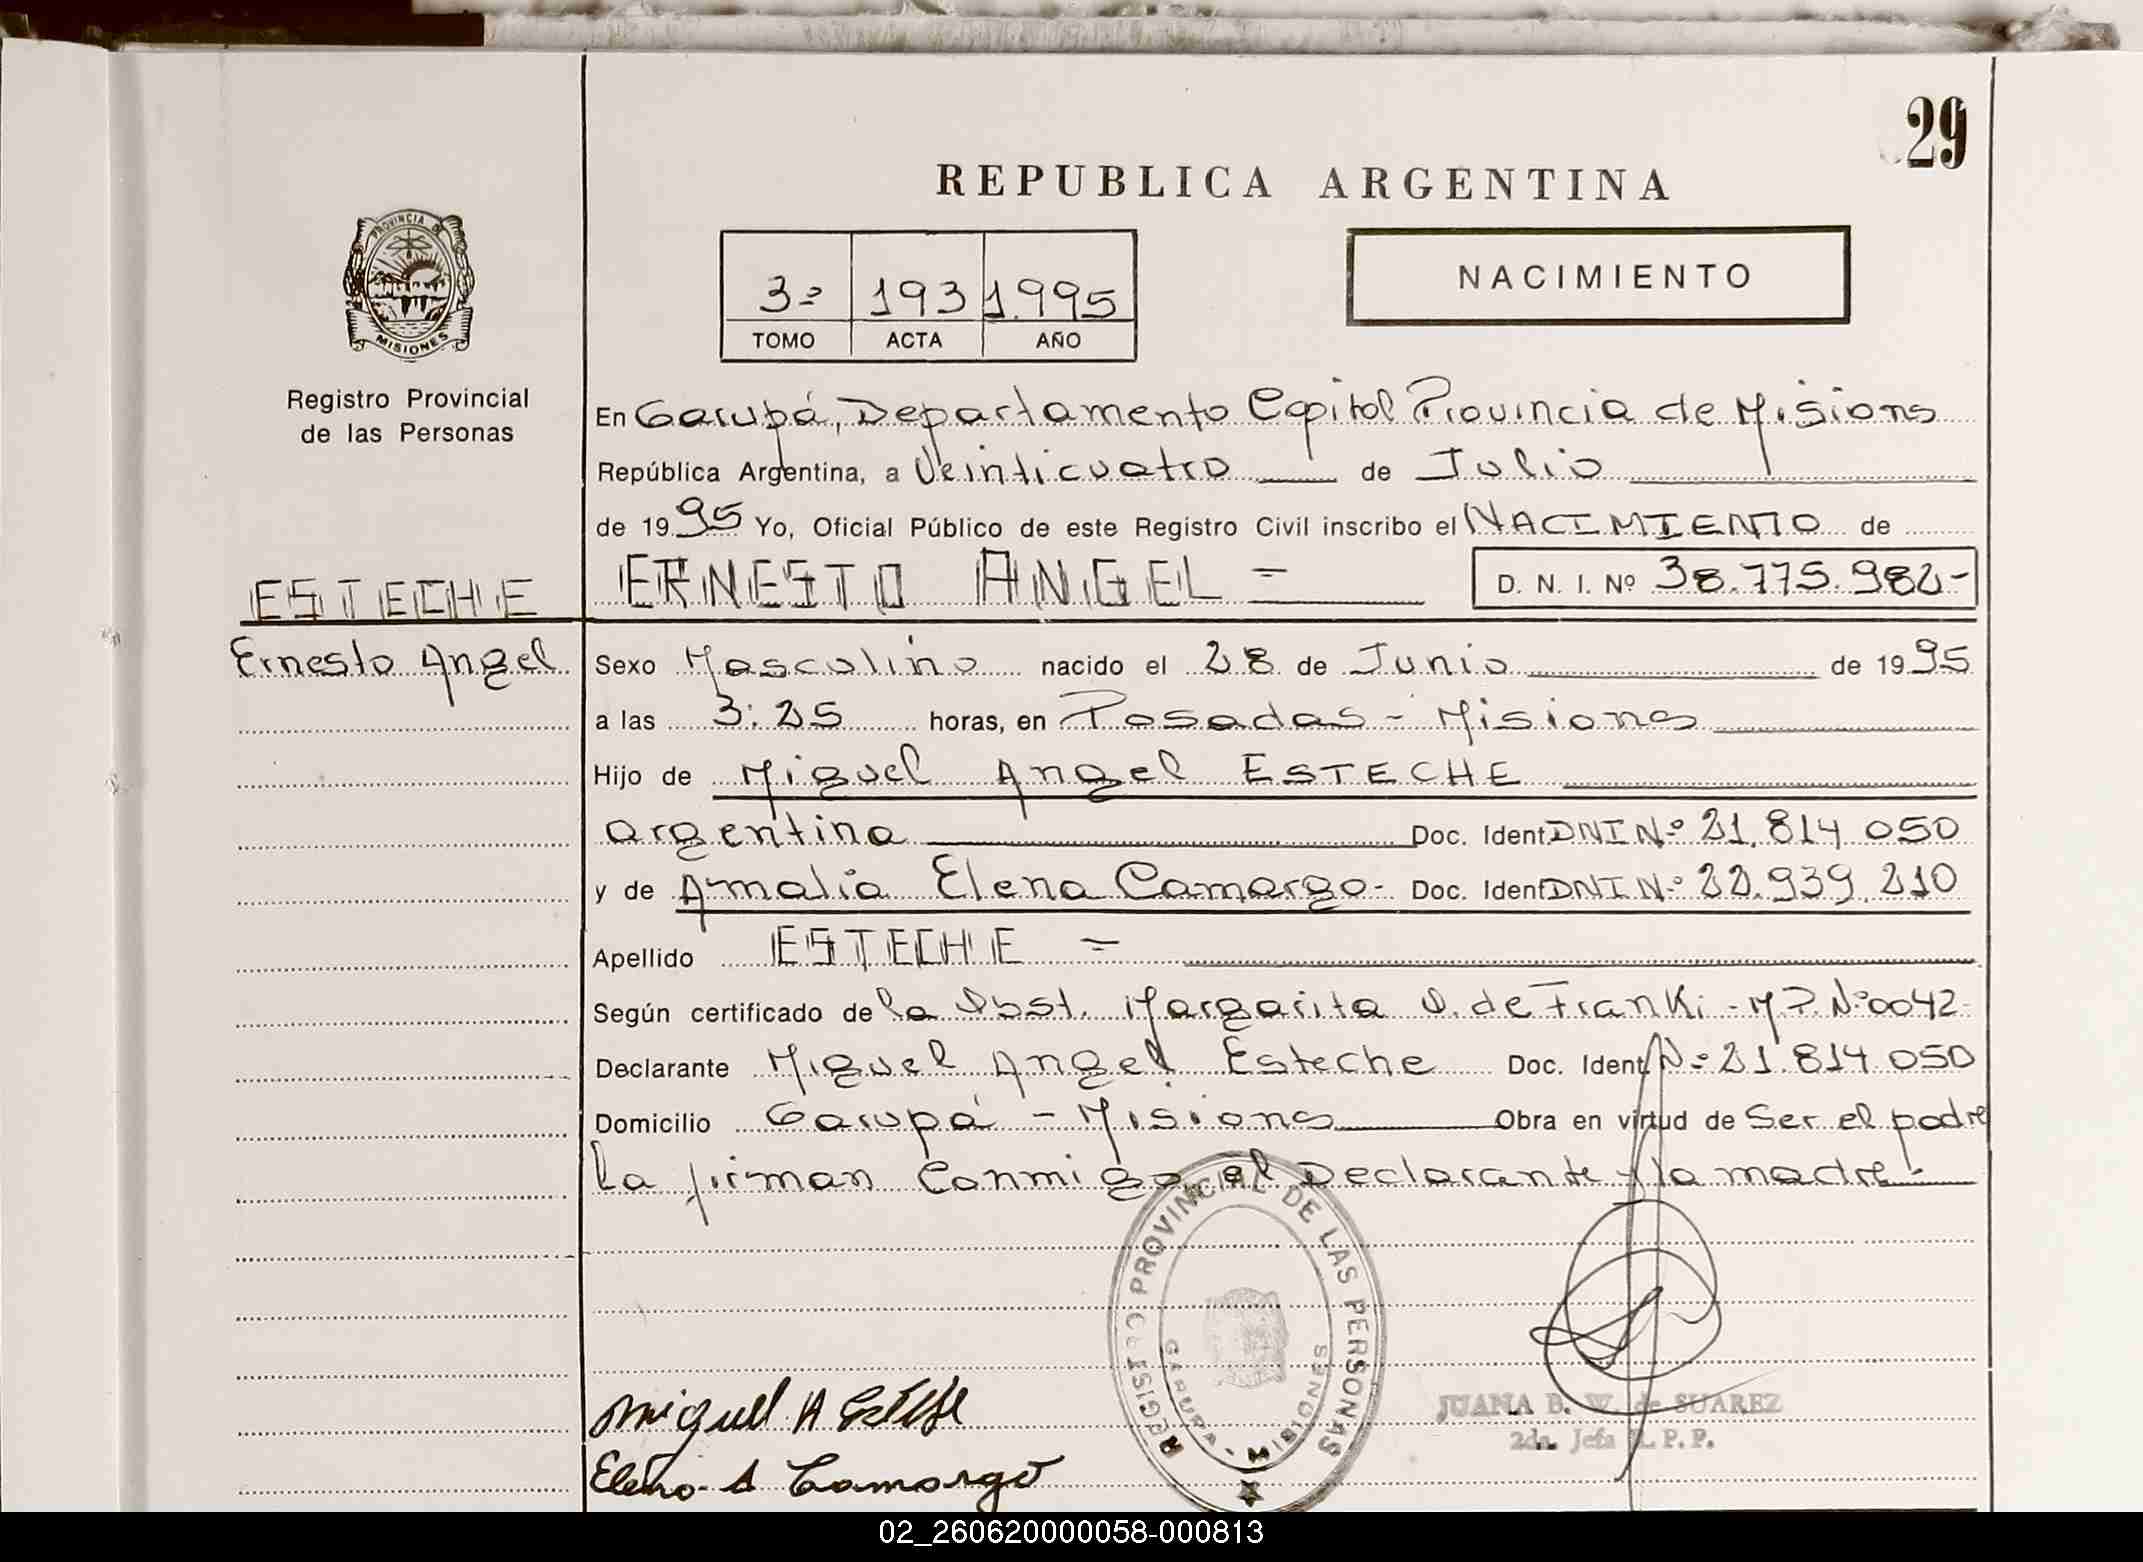 29
REPUBLICA ARGENTINA
PROVINCIA DE
MISIONES
Registro Provincial
de las Personas
3º 193 1.995
TOMO ACTA AÑO
NACIMIENTO
En Garupá, Departamento Capital Provincia de Misiones
República Argentina, a Veinticuatro de Julio
de 1995 Yo, Oficial Público de este Registro Civil inscribo el NACIMIENTO de
ESTECHE ERNESTO ANGEL = D. N. I. Nº 38.775.982-
Ernesto Angel Sexo Masculino nacido el 28 de Junio de 1995
a las 3:25 horas, en Posadas - Misiones
Hijo de Miguel Angel ESTECHE
argentina Doc. Ident DNI Nº 21.814.050
y de Amalia Elena Camargo- Doc. Ident DNI Nº 22.939.210
Apellido ESTECHE =
Según certificado de la Obst. Margarita O. de Franki - M.P. Nº 0042-
Declarante Miguel Angel Esteche Doc. Ident Nº 21.814.050
Domicilio Garupá - Misiones Obra en virtud de Ser el padre
La firman Conmigo el Declarante y la madre.-
REGISTRO PROVINCIAL DE LAS PERSONAS
GARUPA - MISIONES
Miguel A Esteche
Elena A Camargo
JUANA B. W. de SUAREZ
2da. Jefa R.P.P.
02_260620000058-000813